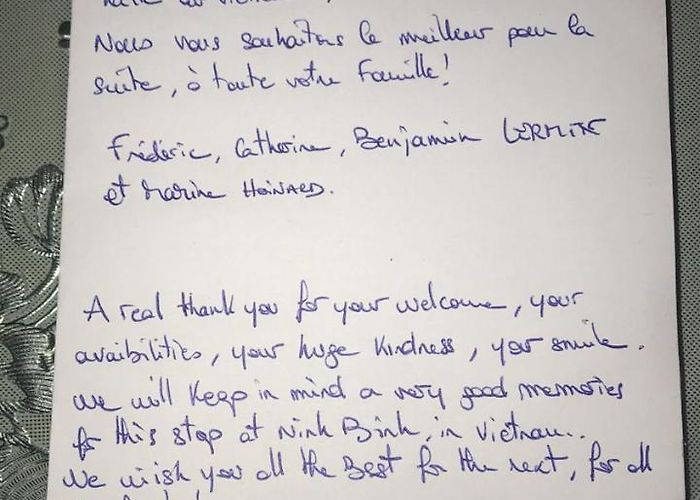 Nous vous souhaitons le meilleur pour la
suite, à toute votre Famille!
Frédéric, Catherine, Benjamin LERMITE
et Marine
A real thank you for your welcome, your
avaibilities, your huge kindness, your smile.
We will keep in mind a very good memories
for this stop at Ninh Binh, in Vietnam..
We wish you all the Best for the next, for all